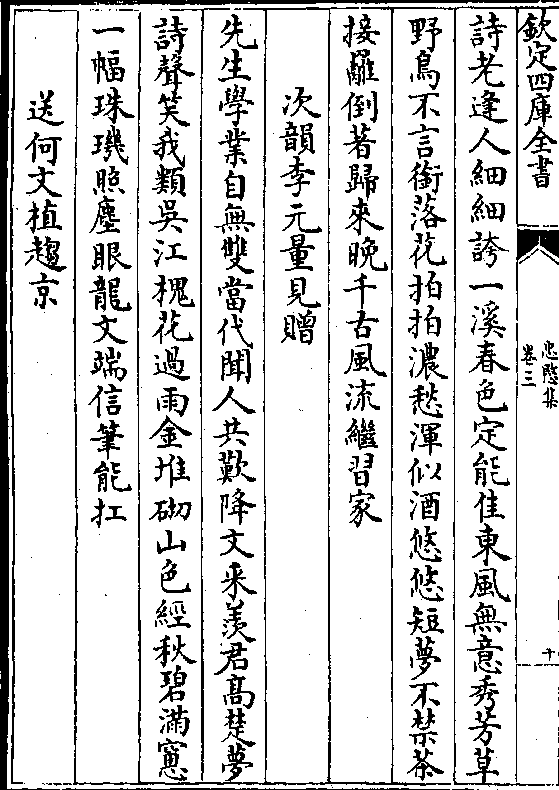 欽定四庫全書
忠愍集
卷三
十
詩老逢人細細誇一溪春色定能佳東風無意秀芳草
野鳥不言銜落花拍拍濃愁渾似酒悠悠短夢不禁茶
接䍦倒著歸來晚千古風流繼習家
次韻李元量見贈
先生學業自無雙當代聞人共歎降文采羨君髙楚夢
詩聲笑我類吳江槐花過雨金堆砌山色經秋碧滿窻
一幅珠璣照塵眼龍文端信筆能扛
送何文植趨京